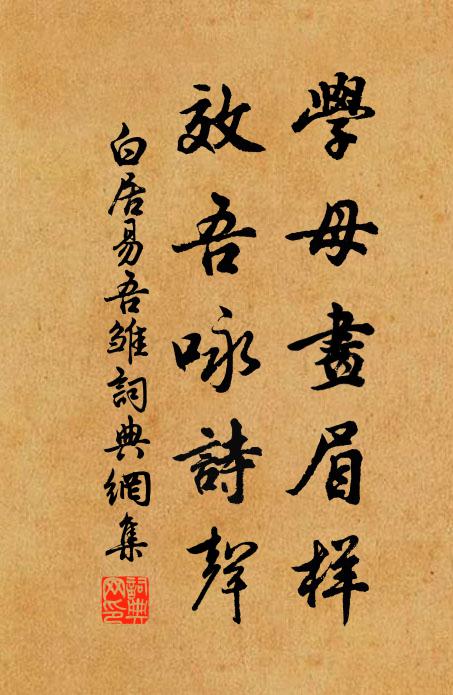 學母畫眉樣
效吾咏詩聲
白居易吾雛詞典網集
詞典網印